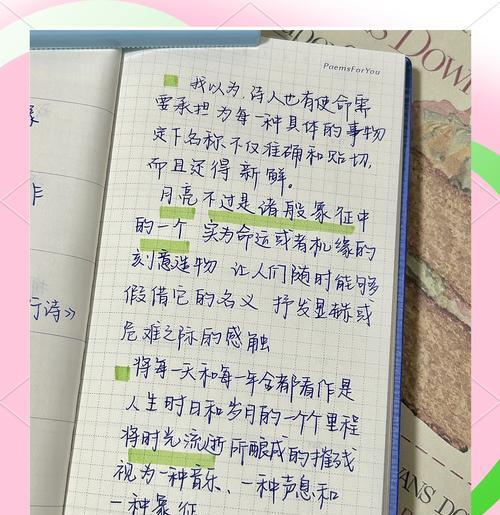 PoemsForYou
我以为,诗人也有使命需
要承担 为每一种具体的事物
定下名称 不仅准确和贴切,
而且还得 新鲜。
月亮 不过是诸般象征中
的一个 实为命运或者机缘的
刻意造物 让人们随时能够
假借它的名义 抒发显赫或
危难之际的感触
将每一天和每一年全都看作是
人生时日和岁月的一个个里程
将时光流逝所酿成的摧残
视为一种音乐、一种声息和
一种象征
行诗》
作
DOWN
ANS DOWN